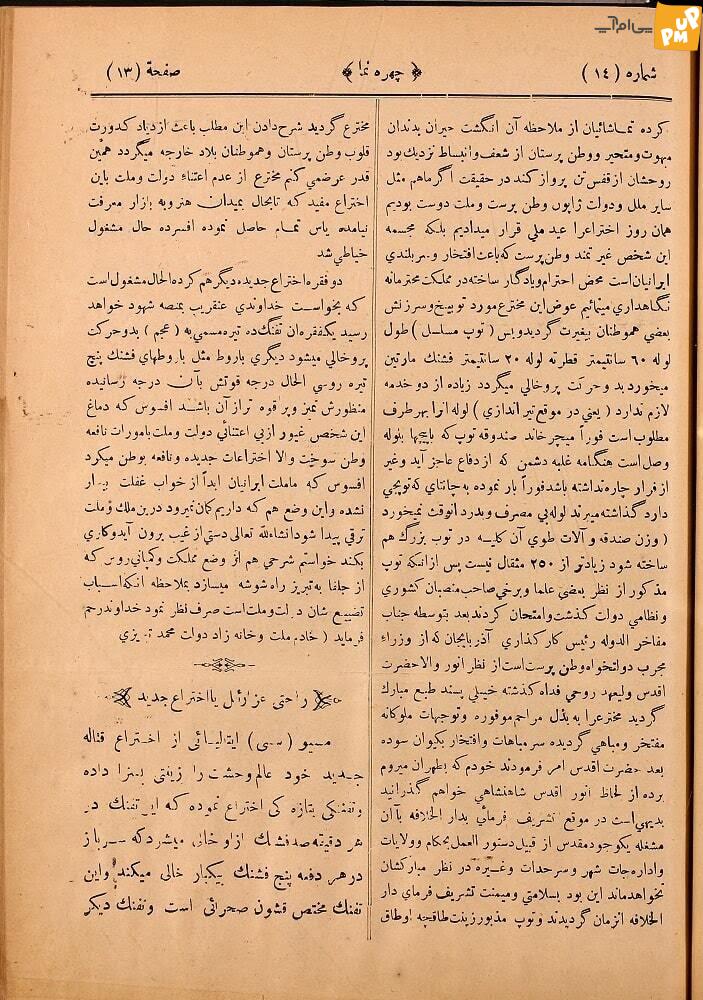 پی‌ام‌آپ
PMUP
شماره (١٤)
﴿ چهره نما ﴾
صفحة (١٣)
كرده تماشائيان از ملاحظه آن انگشت حيران بدندان
مبهوت ومتحير ووطن پرستان از شعف وانبساط نزديك بود
روحشان از قفس تن پرواز كند در حقيقت اگر ماهم مثل
ساير ملل ودولت ژاپون وطن پرست وملت دوست بوديم
همان روز اختراعرا عيد ملي قرار ميداديم بلكه مجسمه
اين شخص غيرتمند وطن پرست كه باعث افتخار وسربلندي
ايرانيان است محض احترام ويادگار ساخته در مملكت محترمانه
نگاهداري مينمائيم عوض اين مخترع مورد توبيخ وسرزنش
بعضي هموطنان بيغيرت گرديد وبس (توپ مسلسل) طول
لوله ٦٠ سانتيمتر قطر ته لوله ٢٠ سانتيمتر فشنك مارتين
ميخورد بد وحركت پروخالي ميگردد زياده از دو خدمه
لازم ندارد (يعني در موقع تير اندازي) لوله انرا بهر طرف
مطلوب است فوراً ميچرخاند صندوقه توپ كه باپيچها بلوله
وصل است هنگامه غلبه دشمن كه از دفاع عاجز آيد وغير
از فرار چاره نداشته باشد فوراً باز نموده به چانتاي كه توپچي
دارد گذاشته ميبرند لوله بي مصرف وبدرد انوقت نميخورد
(وزن صندقه وآلات طوي آن كليه در توپ بزرگ هم
ساخته شود زيادتر از ٢٥٠ مثقال نيست پس از انكه توپ
مذكور از نظر بعضي علما وبرخي صاحب منصبان كشوري
ونظامي دولت گذشت وامتحان كردند بعد بتوسطه جناب
مفاخر الدوله رئيس كارگذاري آذربايجان كه از وزراء
مجرب دولتخواه وطن پرست است از نظر انور والاحضرت
اقدس وليعهد روحي فداه گذشته خيلي پسند طبع مبارك
گرديد مخترعرا به بذل مراحم موفوره وتوجهات ملوكانه
مفتخر ومباهي گرديده سر مباهات وافتخار بكيوان سوده
بعد حضرت اقدس امر فرمودند خودم كه بطهران ميروم
برده از لحاظ انور اقدس شاهنشاهي خواهم گذرانيد
بديهي است در موقع تشريف فرمأي بدار الخلافه باآن
مشغله يكوجود مقدس از قبيل دستور العمل بحكام وولايات
واداره جات شهر وسرحدات وغيره در نظر مباركشان
نخواهد ماند اين بود بسلامتي وميمنت تشريف فرماي دار
الخلافه انزمان گرديدند وتوپ مذبور زينت طاقچه اوطاق
مخترع گرديد شرح دادن اين مطلب باعث ازدياد كدورت
قلوب وطن پرستان وهموطنان بلاد خارجه ميگردد همين
قدر عرض مي كنم مخترع از عدم اعتناء دولت وملت باين
اختراع مفيد كه تابحال بميدان هنر وبه بازار معرفت
نيامده ياس تمام حاصل نموده افسرده حال مشغول
خياطي شد
دو فقره اختراع جديده ديگر هم كرده الحال مشغول است
كه بخواست خداوندي عنقريب بمنصه شهود خواهد
رسيد يكفقره ان تفنگ ده تيره مسمي به (عجم) بدو حركت
پروخالي ميشود ديگري باروط مثل باروطهاي فشنك پنج
تيره روسي الحال درجه قوتش بآن درجه رسانيده
منظورش تميز وپر قوه تر از آن باشد افسوس كه دماغ
اين شخص غيور از بي اعتنائي دولت وملت بامورات نافعه
وطن سوخت والا اختراعات جديده ونافعه بوطن ميكرد
افسوس كه ماملت ايرانيان ابداً از خواب غفلت بيدار
نشده واين وضع هم كه داريم گمان نميرود در بن ملك وملت
ترقي پيدا شود انشاءالله تعالى دستي از غيب برون آيد وكاري
بكند خواستم شرحي هم از وضع مملكت وكمپاني روس كه
از جلفا به تبريز راه شوشه ميسازد بملاحظه انكه اسباب
تضييع شان دولت وملت است صرف نظر نمود خداوند رحم
فرمايد (خادم ملت وخانه زاد دولت محمد تبريزي
راحتي عزرائل يا اختراع جديد
مسيو (سي) ايتاليائى از اختراع قتاله
جديد خود عالم وحشت را زينتي بسزا داده
وتفنگى بتازه كى اختراع نموده كه اين تفنك در
هر دقيقه صد فشنك از او خالى ميشود كه سرباز
در هر دفعه پنج فشنك بيكبار خالى ميكند واين
تفنك مختص قشون صحرائى است وتفنك ديگر